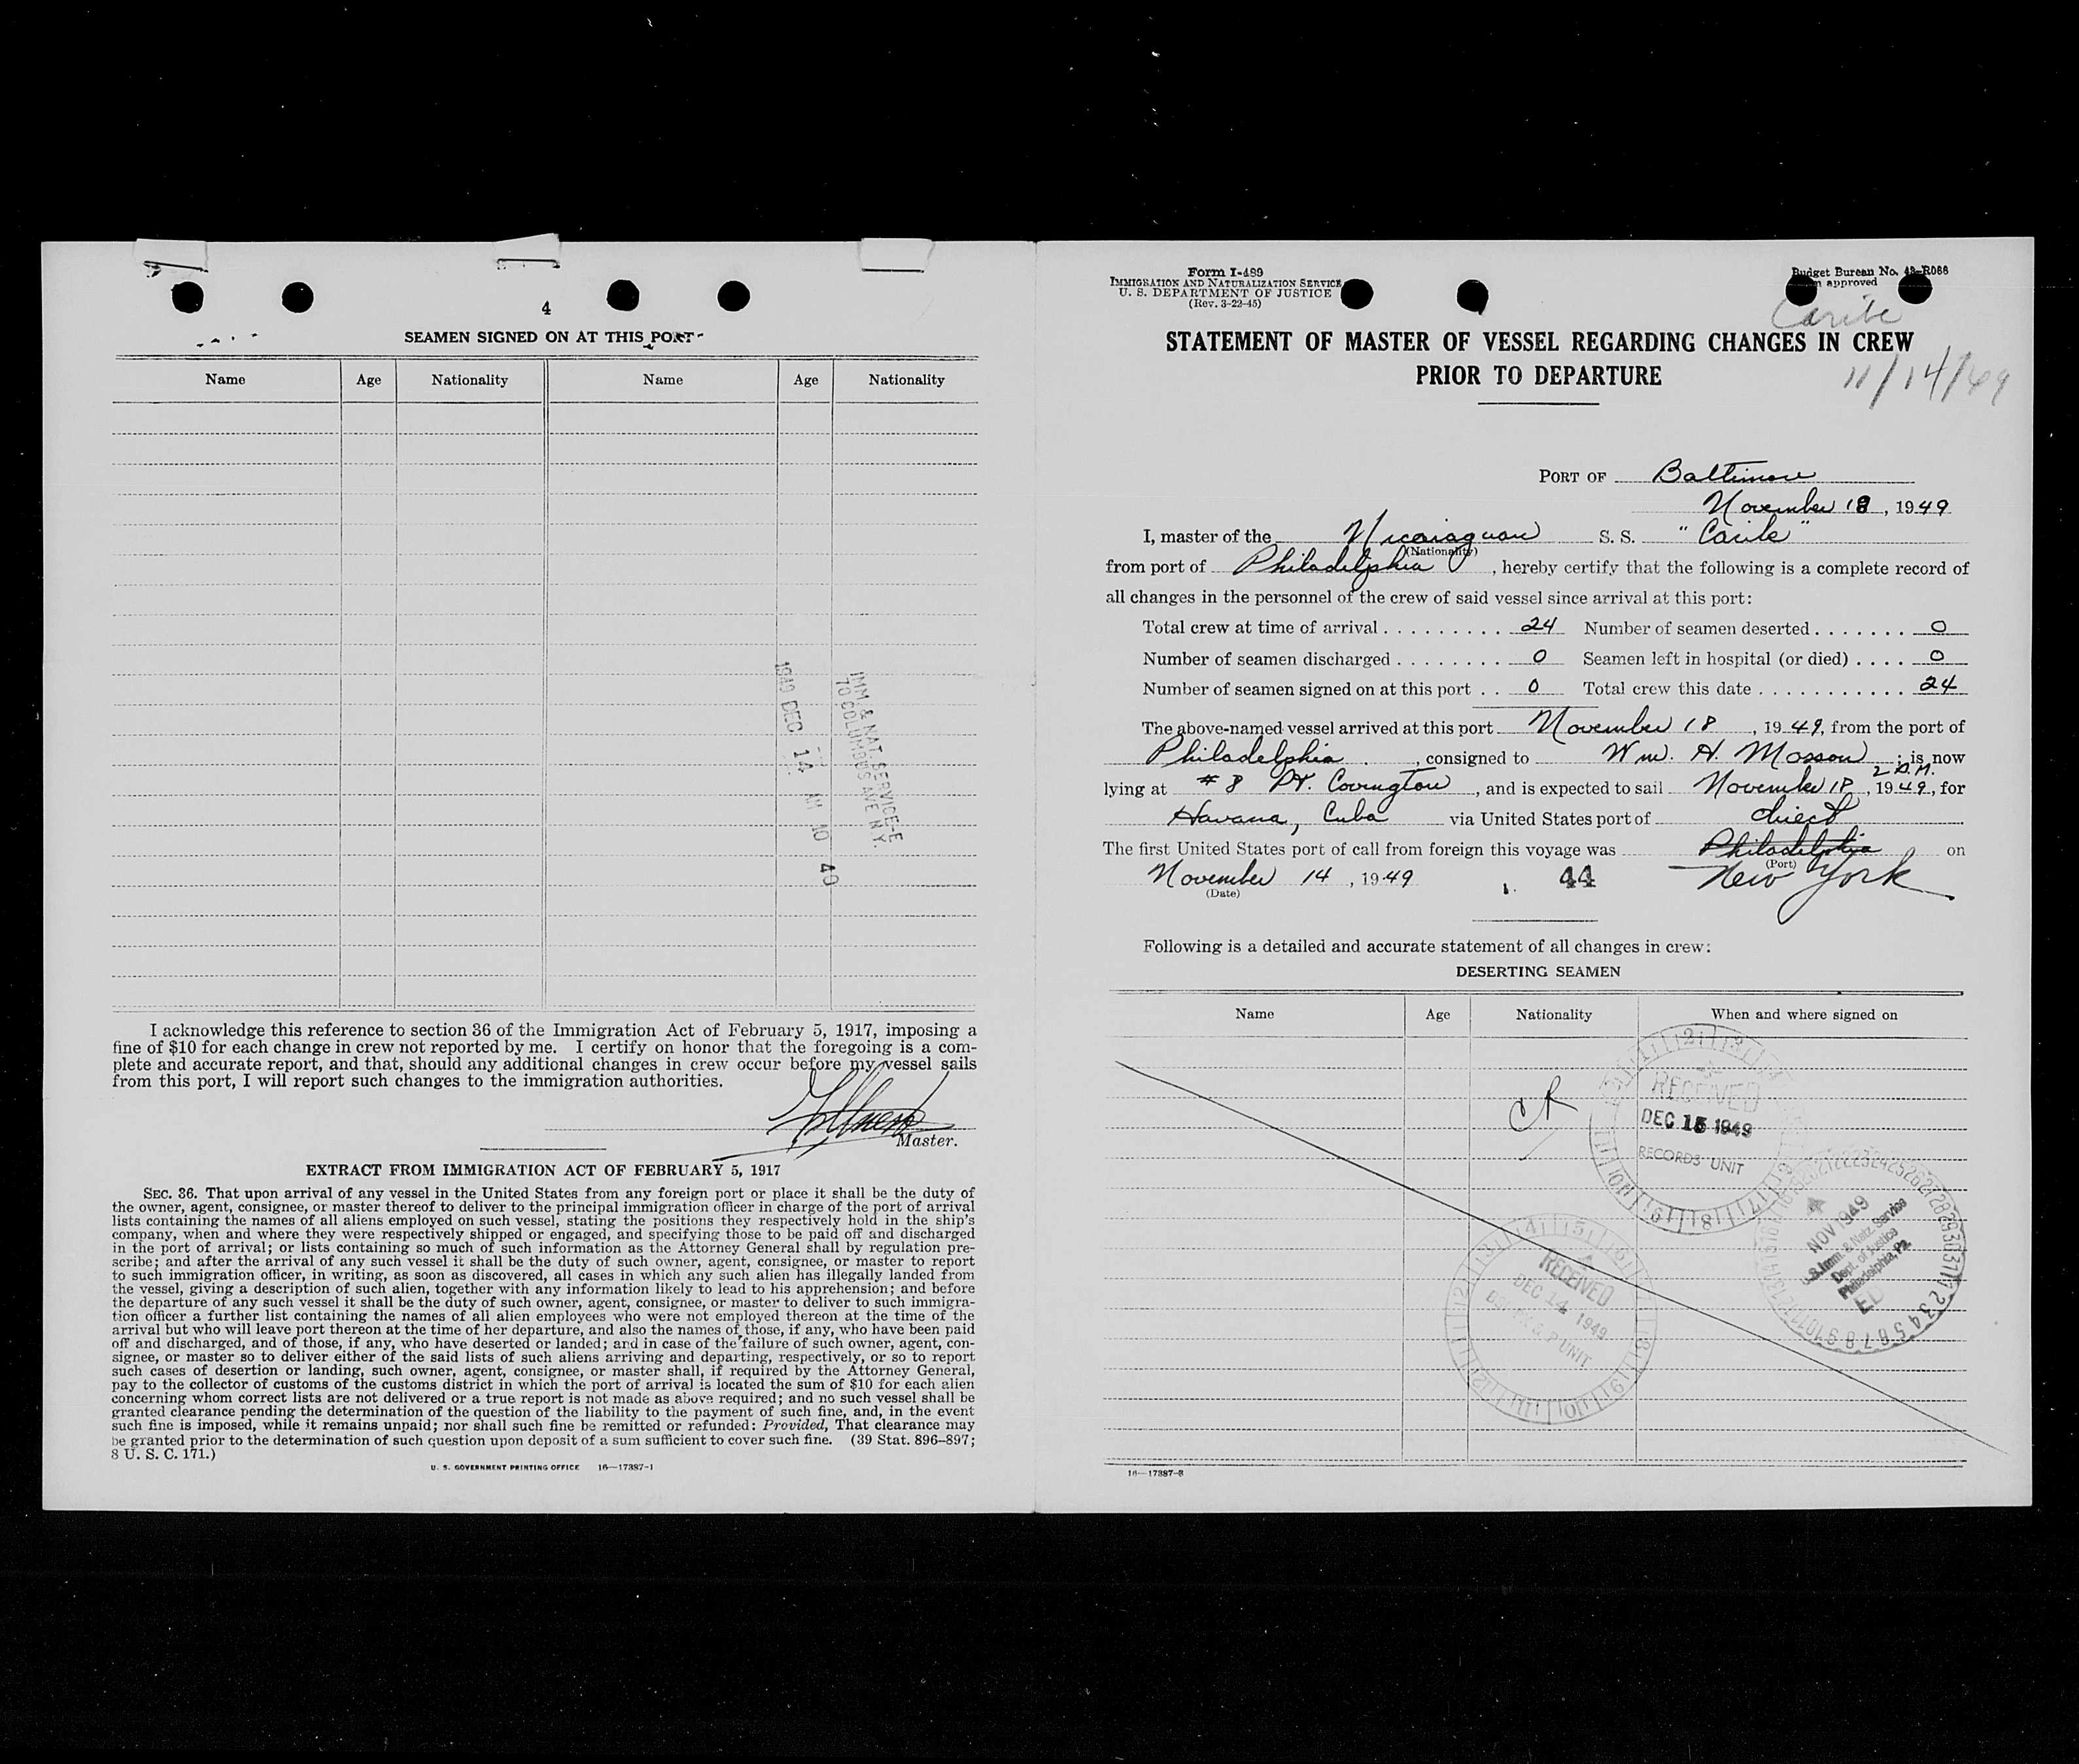 4
SEAMEN SIGNED ON AT THIS PORT
Name Age Nationality Name Age Nationality
IMM & NAT. SERVICE-E
70 COLUMBUS AVE N.Y.
1949 DEC 14 AM 10 40
I acknowledge this reference to section 36 of the Immigration Act of February 5, 1917, imposing a
fine of $10 for each change in crew not reported by me. I certify on honor that the foregoing is a com-
plete and accurate report, and that, should any additional changes in crew occur before my vessel sails
from this port, I will report such changes to the immigration authorities.
Master.
EXTRACT FROM IMMIGRATION ACT OF FEBRUARY 5, 1917
SEC. 36. That upon arrival of any vessel in the United States from any foreign port or place it shall be the duty of
the owner, agent, consignee, or master thereof to deliver to the principal immigration officer in charge of the port of arrival
lists containing the names of all aliens employed on such vessel, stating the positions they respectively hold in the ship's
company, when and where they were respectively shipped or engaged, and specifying those to be paid off and discharged
in the port of arrival; or lists containing so much of such information as the Attorney General shall by regulation pre-
scribe; and after the arrival of any such vessel it shall be the duty of such owner, agent, consignee, or master to report
to such immigration officer, in writing, as soon as discovered, all cases in which any such alien has illegally landed from
the vessel, giving a description of such alien, together with any information likely to lead to his apprehension; and before
the departure of any such vessel it shall be the duty of such owner, agent, consignee, or master to deliver to such immigra-
tion officer a further list containing the names of all alien employees who were not employed thereon at the time of the
arrival but who will leave port thereon at the time of her departure, and also the names of those, if any, who have been paid
off and discharged, and of those, if any, who have deserted or landed; and in case of the failure of such owner, agent, con-
signee, or master so to deliver either of the said lists of such aliens arriving and departing, respectively, or so to report
such cases of desertion or landing, such owner, agent, consignee, or master shall, if required by the Attorney General,
pay to the collector of customs of the customs district in which the port of arrival is located the sum of $10 for each alien
concerning whom correct lists are not delivered or a true report is not made as above required; and no such vessel shall be
granted clearance pending the determination of the question of the liability to the payment of such fine, and, in the event
such fine is imposed, while it remains unpaid; nor shall such fine be remitted or refunded: Provided, That clearance may
be granted prior to the determination of such question upon deposit of a sum sufficient to cover such fine. (39 Stat. 896–897;
8 U. S. C. 171.)
U. S. GOVERNMENT PRINTING OFFICE 16—17387-1
Form I-489
IMMIGRATION AND NATURALIZATION SERVICE
U. S. DEPARTMENT OF JUSTICE
(Rev. 3-22-45)
Budget Bureau No. 43-R066
approved
Caribe
STATEMENT OF MASTER OF VESSEL REGARDING CHANGES IN CREW
PRIOR TO DEPARTURE
11/14/49
PORT OF Baltimore
November 18, 1949
I, master of the Nicaraguan S. S. "Caribe"
(Nationality)
from port of Philadelphia, hereby certify that the following is a complete record of
all changes in the personnel of the crew of said vessel since arrival at this port:
Total crew at time of arrival 24 Number of seamen deserted 0
Number of seamen discharged 0 Seamen left in hospital (or died) 0
Number of seamen signed on at this port 0 Total crew this date 24
The above-named vessel arrived at this port November 18, 1949, from the port of
Philadelphia, consigned to Wm. H. Masson; is now
2 P.M.
lying at #8 Pt. Covington, and is expected to sail November 18, 1949, for
Havana, Cuba via United States port of direct
The first United States port of call from foreign this voyage was Philadelphia on
(Port)
November 14, 1949 44 New York
(Date)
Following is a detailed and accurate statement of all changes in crew:
DESERTING SEAMEN
Name Age Nationality When and where signed on
RECEIVED
DEC 15 1949
RECORDS UNIT
NOV 1949
U.S. Imm. & Natz. Service
Dept. of Justice
Philadelphia, Pa.
RECEIVED
DEC 14 1949
UNIT
16—17387-3